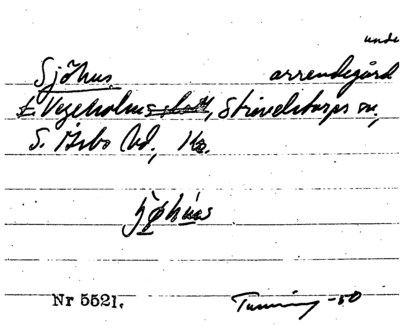 unde
Sjöhus arrendegård
t. Vegeholms slott, Strövelstorps sn,
S. Åsbo hd, Kr.
Nr 5521.
-50